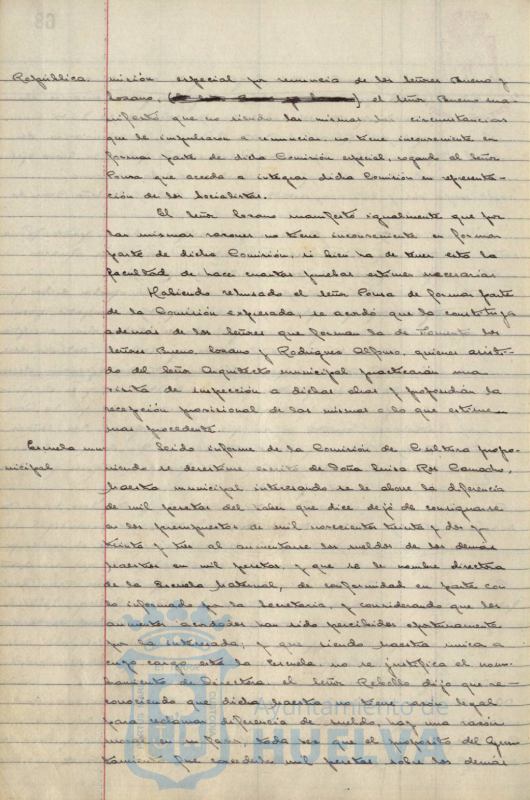 República. misión especial por renuncia de los señores Bueno y
Lozano, el señor Bueno ma-
nifestó que no siendo las mismas las circunstancias
que le impulsaron a renunciar, no tiene inconveniente en
formar parte de dicha Comisión especial, rogando al señor
Ponsa que acceda a integrar dicha Comisión en representa-
ción de los Socialistas.
El señor Lozano manifestó igualmente que por
las mismas razones no tiene inconveniente en formar
parte de dicha Comisión, si bien ha de tener esta la
facultad de hacer cuantas pruebas estimen necesarias
Habiendo rehusado el señor Ponsa de formar parte
de la Comisión expresada, se acordó que la constituya
además de los señores que forman la de Fomento los
señores Bueno, Lozano y Rodríguez Alfonso, quienes asisti-
do del señor Arquitecto municipal practicarán una
visita de inspección a dichas obras y propondrán la
recepción provisional de las mismas o lo que estimen
mas procedente.
Escuela mu- Leido informe de la Comisión de Cultura propo-
nicipal niendo se desestime escrito de Doña Luisa Ros Camacho,
Maestra municipal interesando se le abone la diferencia
de mil pesetas del haber que dice dejó de consignarse
en los presupuestos de mil novecientos treinta y dos y
treinta y tres al aumentarse los sueldos de los demás
Maestros en mil pesetas, y que se le nombre directora
de la Escuela Maternal, de conformidad en parte con
lo informado por la Secretaría, y considerando que los
aumentos acordados han sido percibidos oportunamente
por la interesada; y que siendo maestra unica a
cuyo cargo está la Escuela no se justifica el nom-
bramiento de Directora, el señor Rebollo dijo que re-
conociendo que dicha Maestra no tiene razón legal
para reclamar diferencia de sueldo, hay una razón
moral en su favor, toda vez que el propósito del Ayun-
tamiento fue conceder mil pesetas sobre los demás
Ayuntamiento de
HUELVA